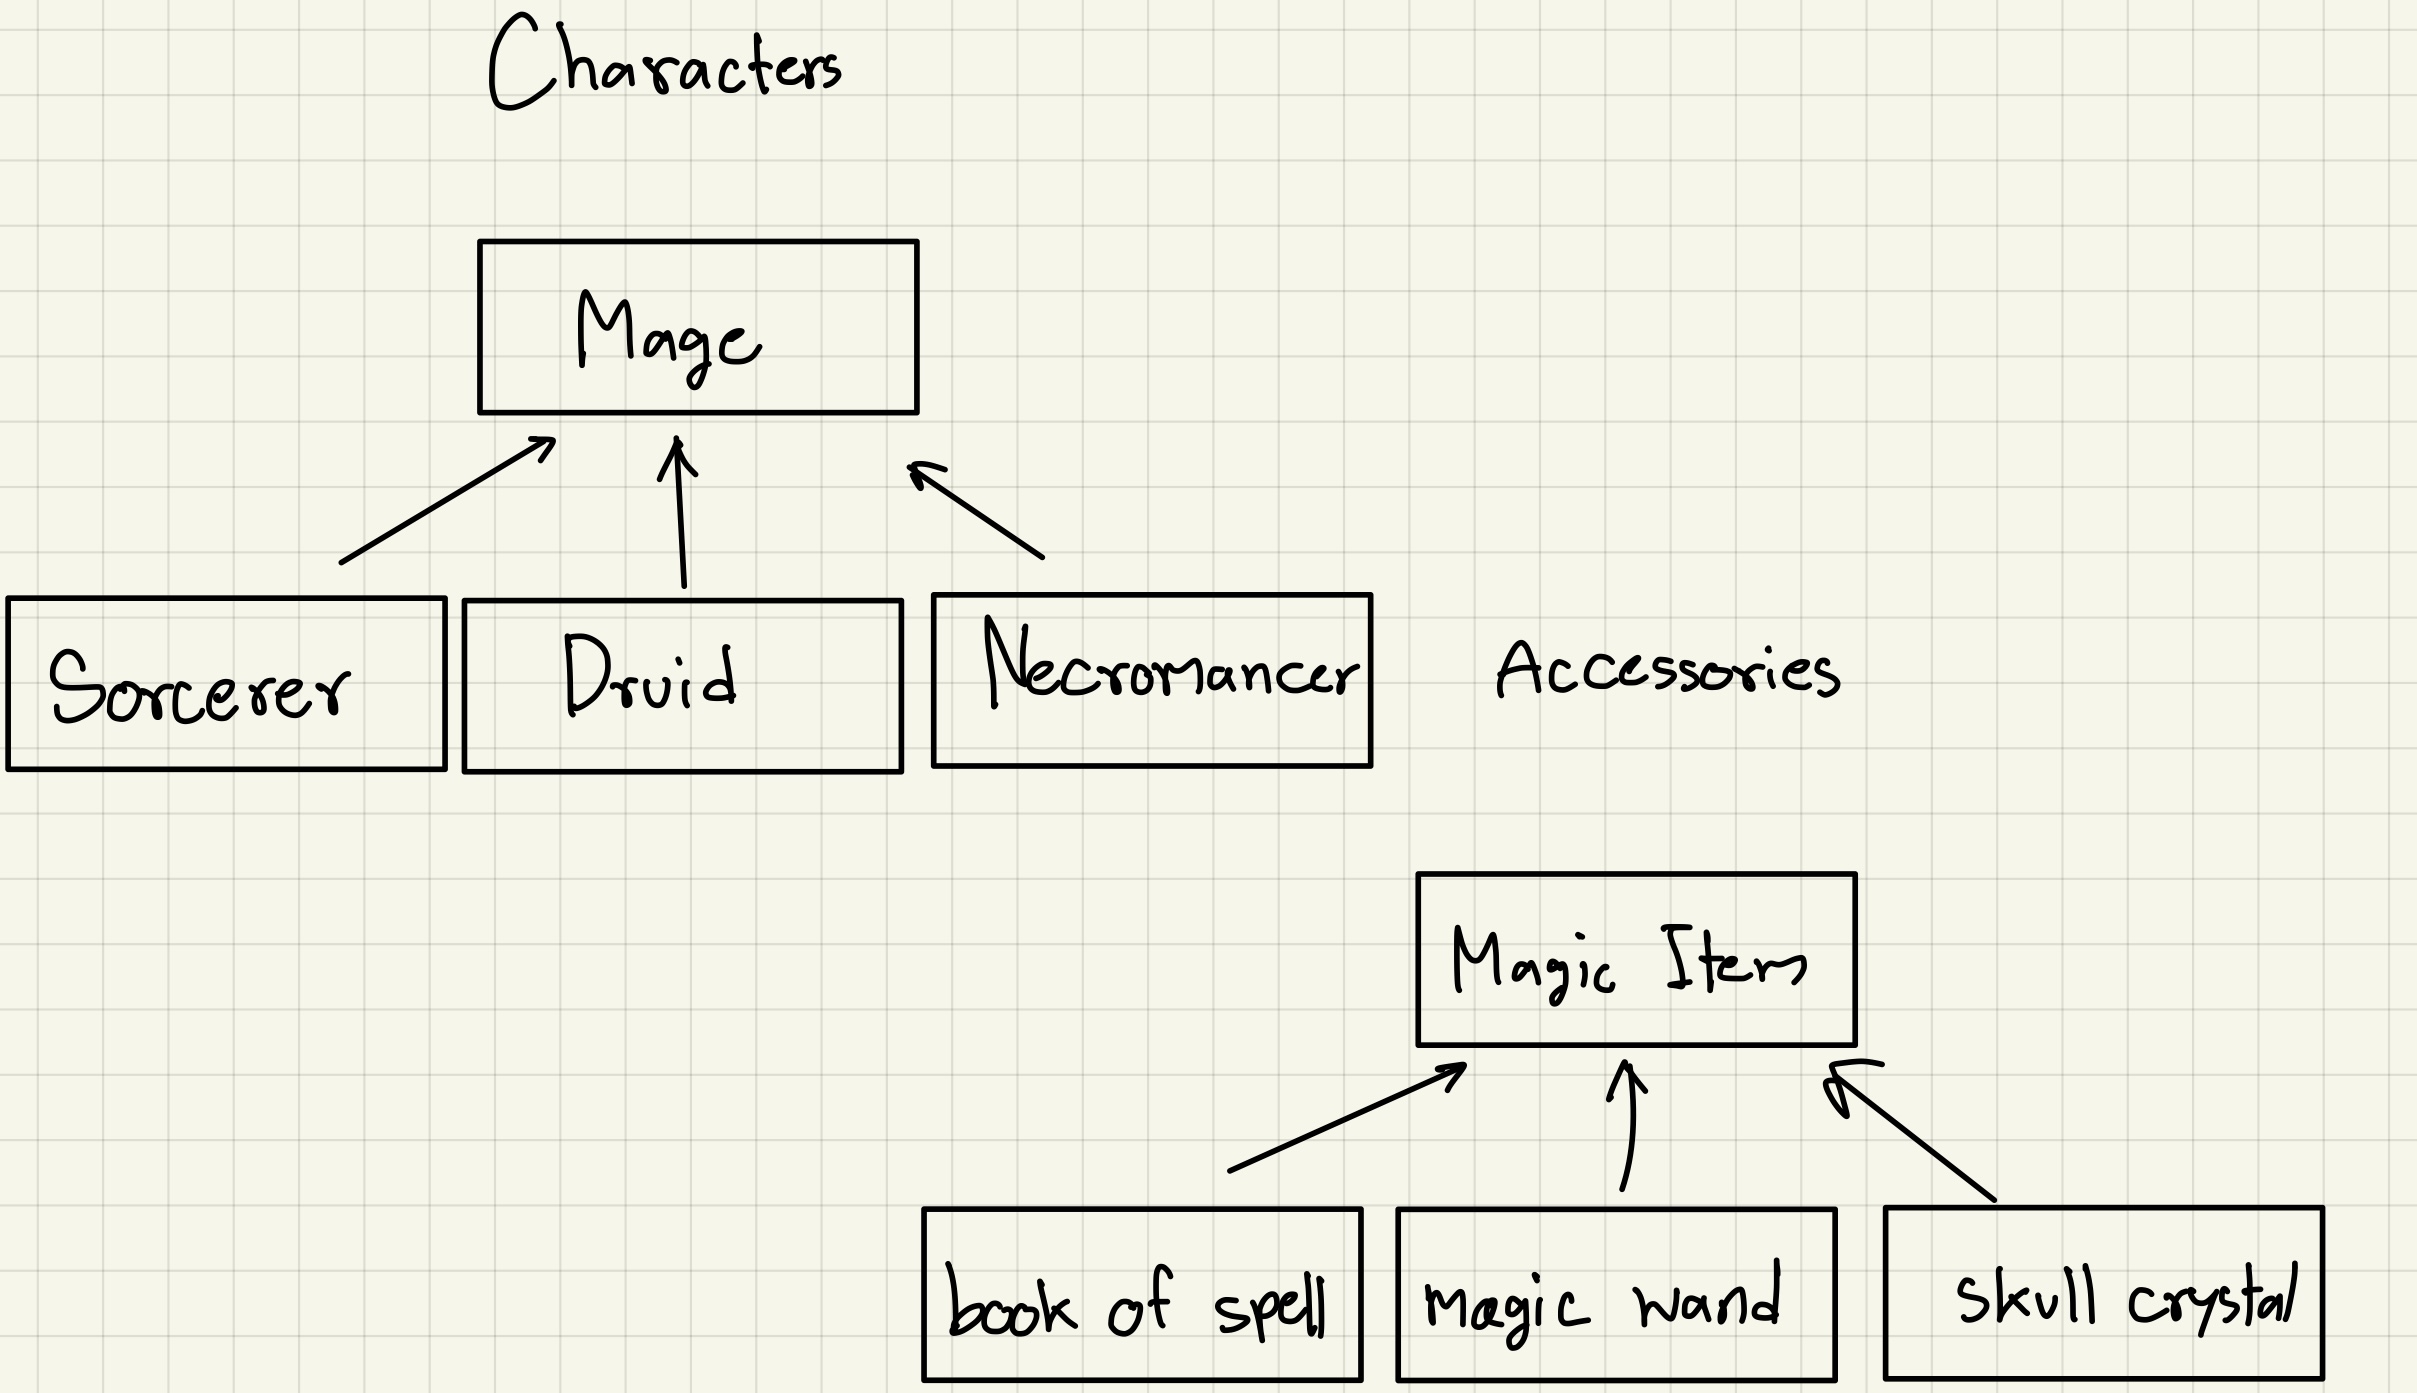 Characters
Mage
Sorcerer
Druid
Necromancer
Accessories
Magic Item
book of spell
magic wand
skull crystal